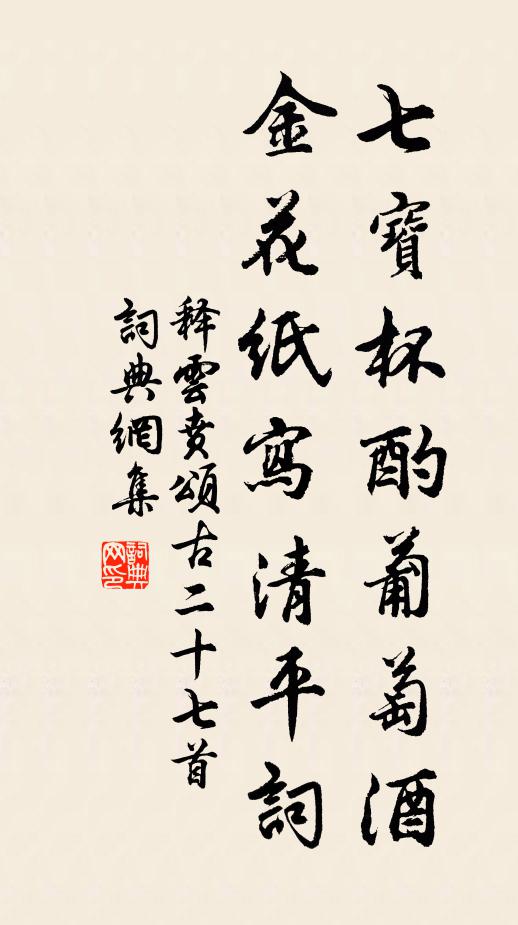 七寶杯酌葡萄酒
金花紙寫清平詞
释雲賁頌古二十七首
詞典網集
詞典网印